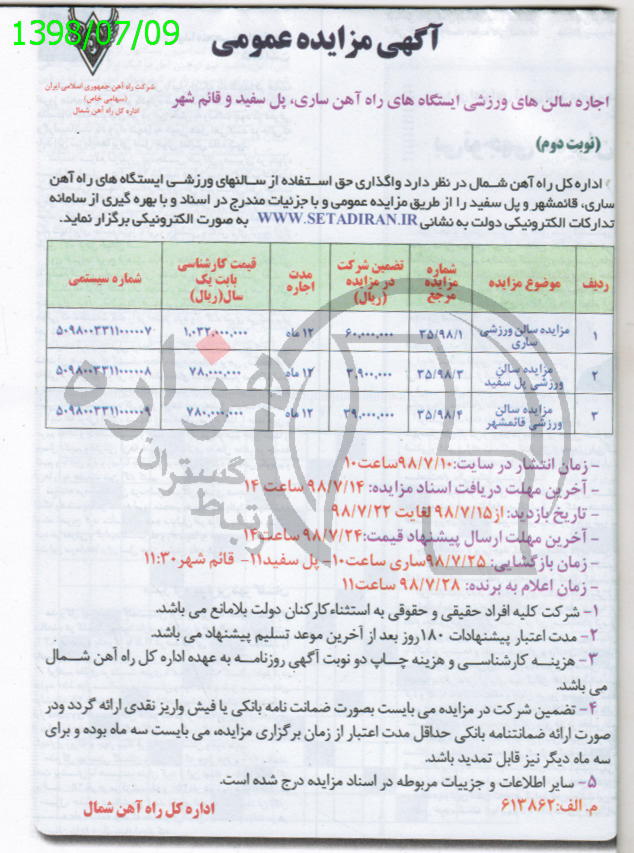 1398/07/09
آگهی مزایده عمومی
شرکت راه آهن جمهوری اسلامی ایران
(سهامی خاص)
اداره کل راه آهن شمال
اجاره سالن های ورزشی ایستگاه های راه آهن ساری، پل سفید و قائم شهر
(نوبت دوم)
اداره کل راه آهن شمال در نظر دارد واگذاری حق استفاده از سالنهای ورزشی ایستگاه های راه آهن
ساری، قائمشهر و پل سفید را از طریق مزایده عمومی و با جزئیات مندرج در اسناد و با بهره گیری از سامانه
تدارکات الکترونیکی دولت به نشانی WWW.SETADIRAN.IR به صورت الکترونیکی برگزار نماید.
ردیف موضوع مزایده شماره مزایده مرجع تضمین شرکت در مزایده (ریال) مدت اجاره قیمت کارشناسی بابت یک سال(ریال) شماره سیستمی
۱ مزایده سالن ورزشی ساری ۳۵/۹۸/۱ ۶۰,۰۰۰,۰۰۰ ۱۲ ماه ۱,۰۳۲,۰۰۰,۰۰۰ ۵۰۹۸۰۰۳۳۱۱۰۰۰۰۰۷
۲ مزایده سالن ورزشی پل سفید ۳۵/۹۸/۳ ۳,۹۰۰,۰۰۰ ۱۲ ماه ۷۸,۰۰۰,۰۰۰ ۵۰۹۸۰۰۳۳۱۱۰۰۰۰۰۸
۳ مزایده سالن ورزشی قائمشهر ۳۵/۹۸/۴ ۳۹,۰۰۰,۰۰۰ ۱۲ ماه ۷۸۰,۰۰۰,۰۰۰ ۵۰۹۸۰۰۳۳۱۱۰۰۰۰۰۹
هزاره
گستران
ارتباط
- زمان انتشار در سایت:۹۸/۷/۱۰ساعت۱۰
- آخرین مهلت دریافت اسناد مزایده: ۹۸/۷/۱۴ ساعت ۱۴
- تاریخ بازدید: از۹۸/۷/۱۵ لغایت ۹۸/۷/۲۲
- آخرین مهلت ارسال پیشنهاد قیمت:۹۸/۷/۲۴ ساعت۱۴
- زمان بازگشایی: ۹۸/۷/۲۵ساری ساعت۱۰- پل سفید۱۱- قائم شهر۱۱:۳۰
- زمان اعلام به برنده: ۹۸/۷/۲۸ ساعت۱۱
۱- شرکت کلیه افراد حقیقی و حقوقی به استثناء کارکنان دولت بلامانع می باشد.
۲- مدت اعتبار پیشنهادات ۱۸۰روز بعد از آخرین موعد تسلیم پیشنهاد می باشد.
۳- هزینه کارشناسی و هزینه چاپ دو نوبت آگهی روزنامه به عهده اداره کل راه آهن شمال
می باشد.
۴- تضمین شرکت در مزایده می بایست بصورت ضمانت نامه بانکی یا فیش واریز نقدی ارائه گردد ودر
صورت ارائه ضمانتنامه بانکی حداقل مدت اعتبار از زمان برگزاری مزایده، می بایست سه ماه بوده و برای
سه ماه دیگر نیز قابل تمدید باشد.
۵- سایر اطلاعات و جزییات مربوطه در اسناد مزایده درج شده است.
م. الف:۶۱۳۸۶۲
اداره کل راه آهن شمال